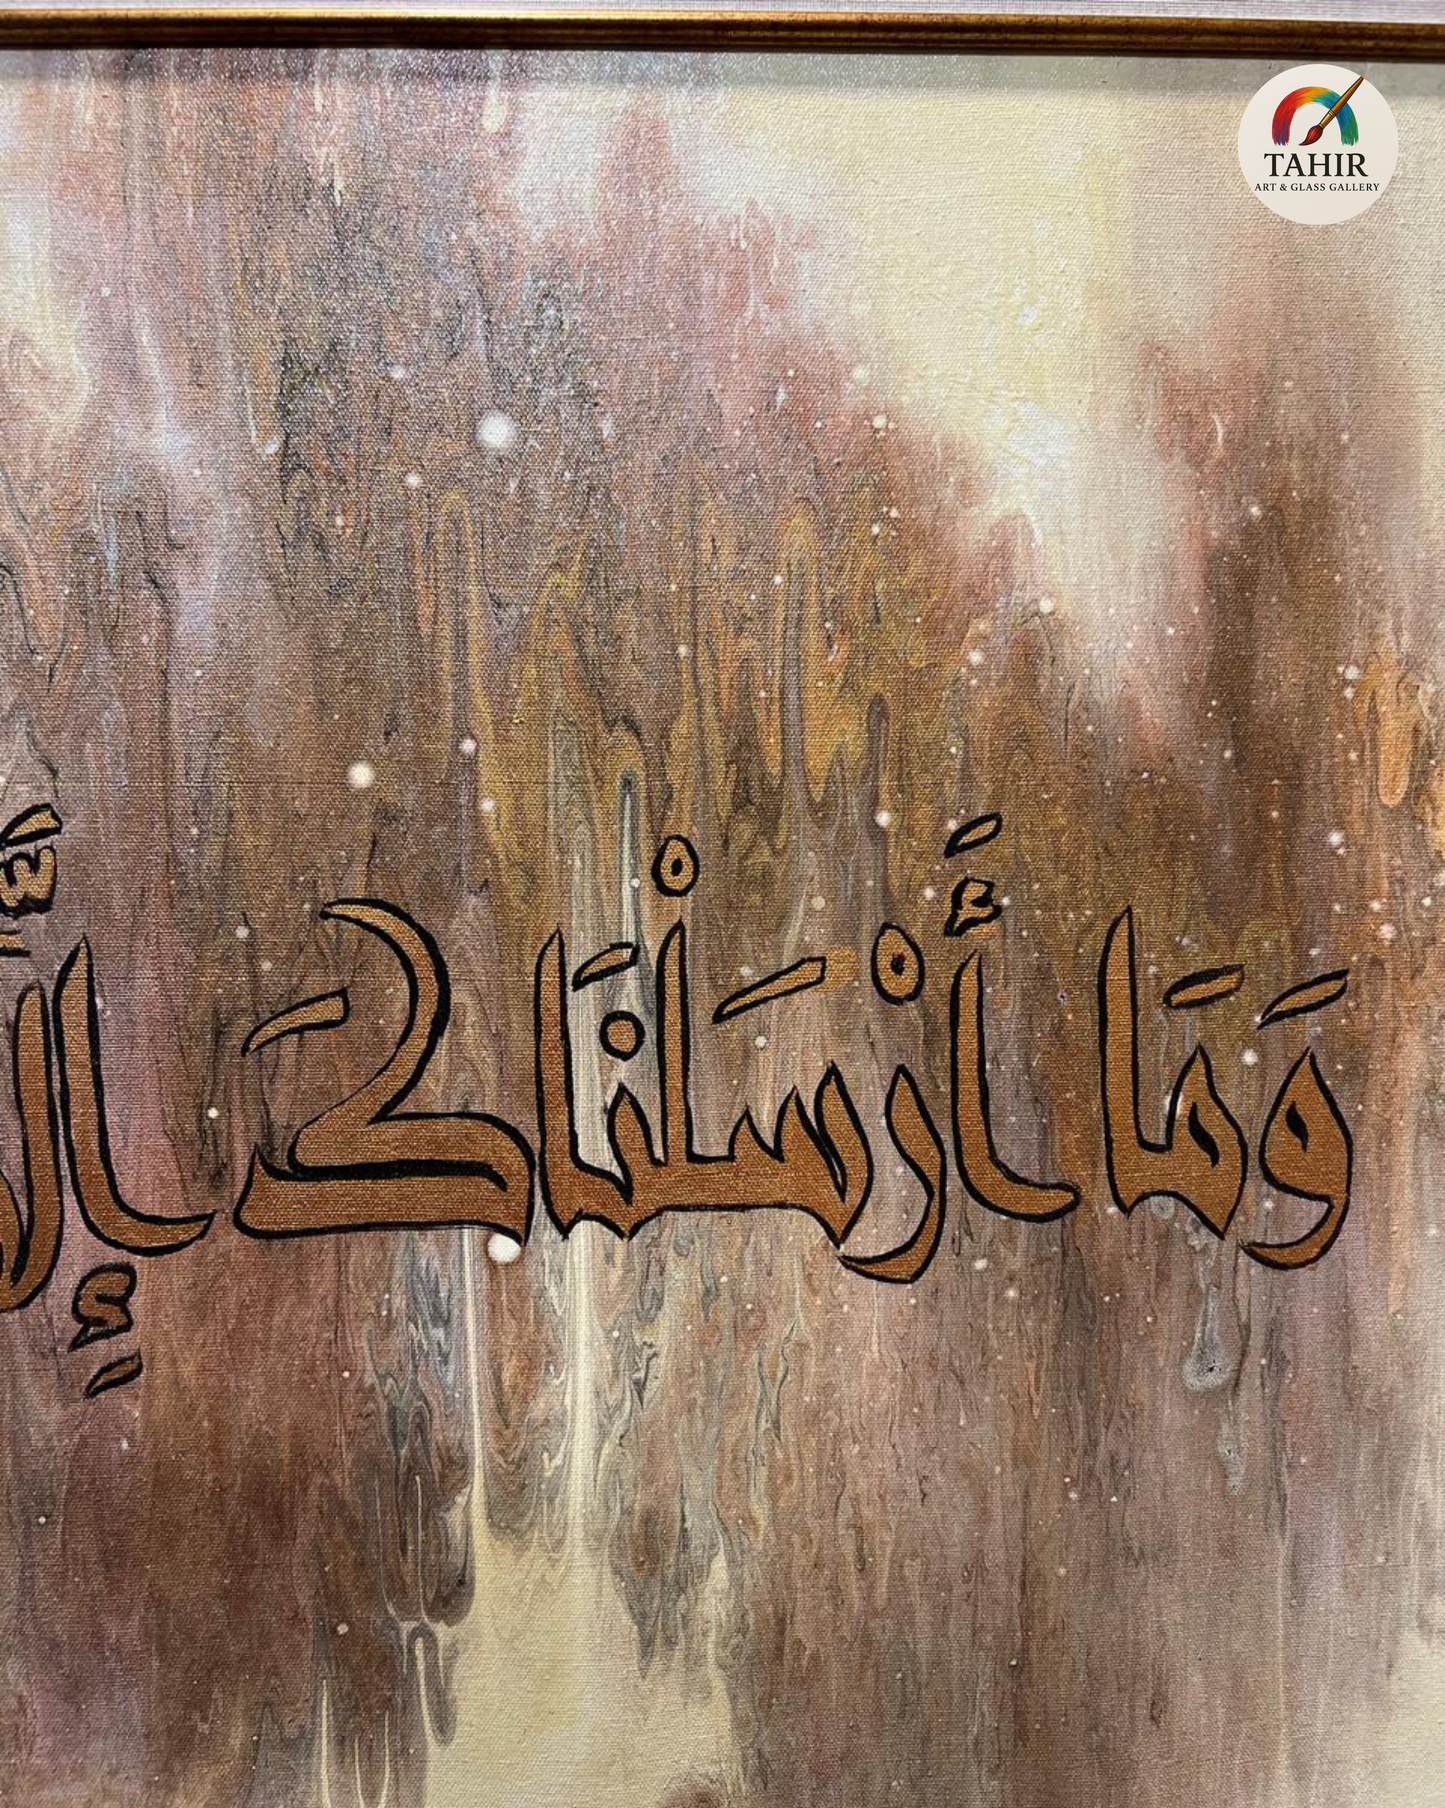 TAHIR
ART & GLASS GALLERY
وَمَا أَرْسَلْنَاكَ إِلَّا